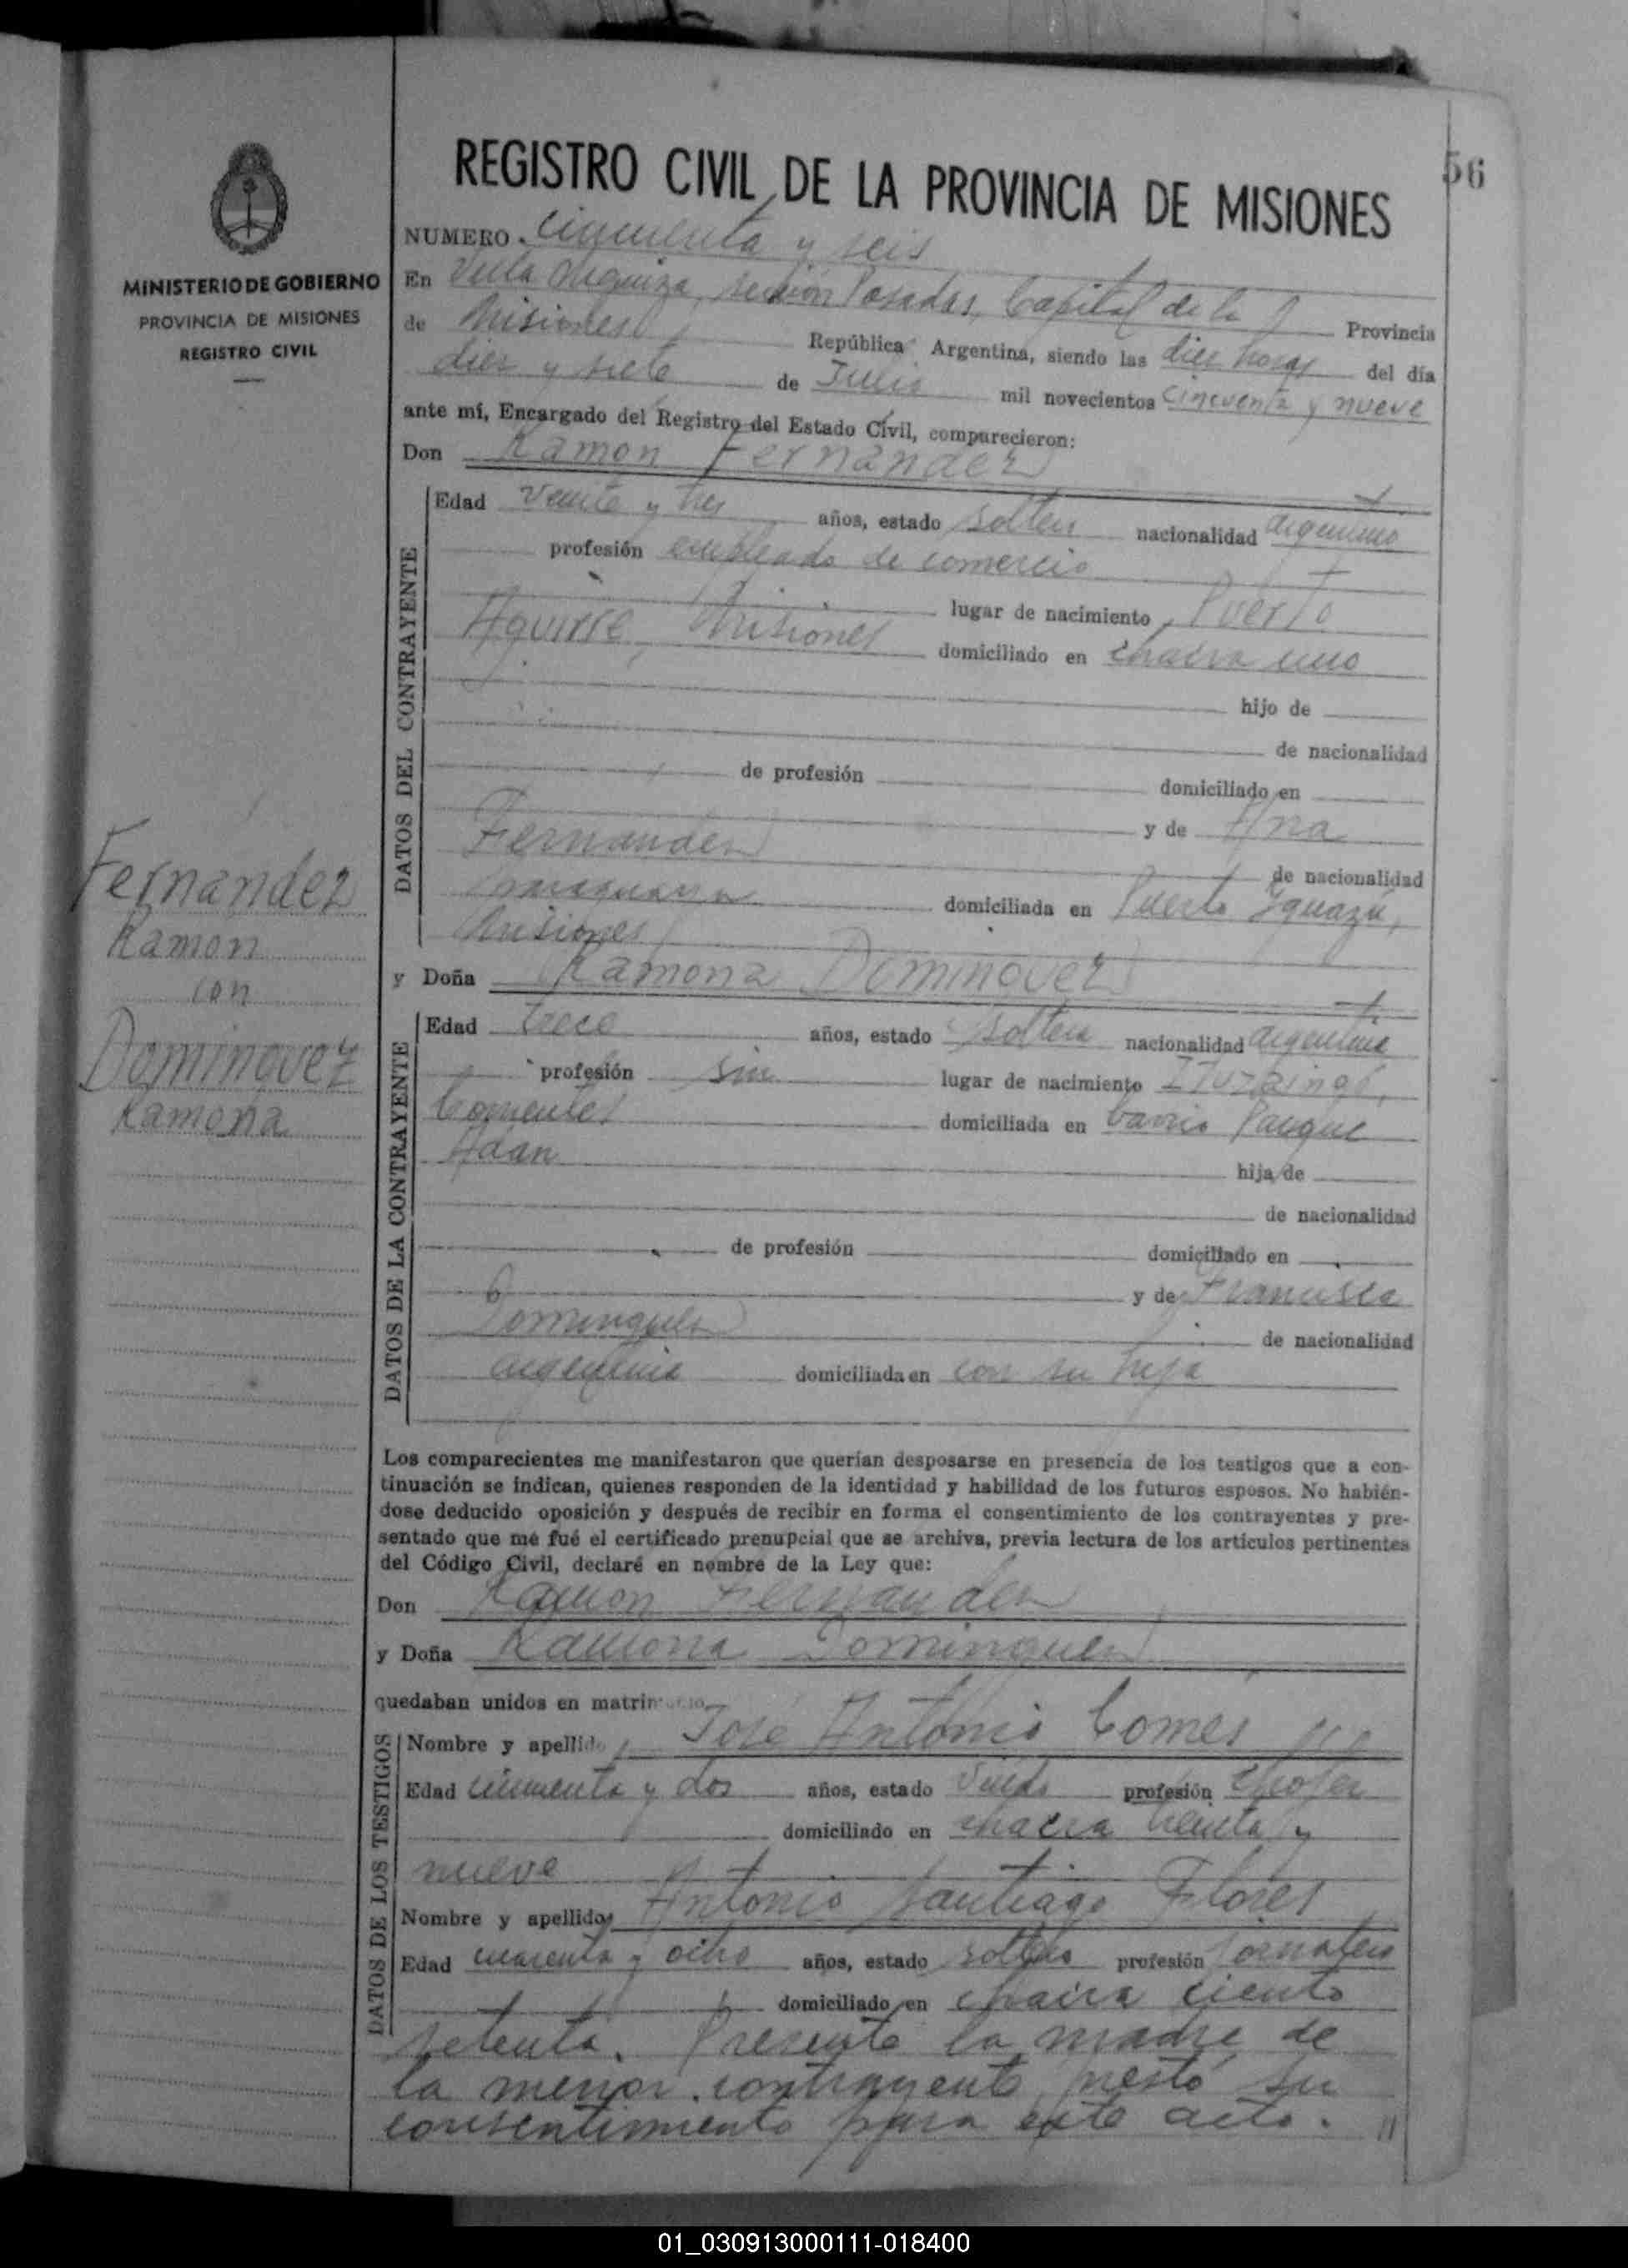 56
REGISTRO CIVIL DE LA PROVINCIA DE MISIONES
MINISTERIO DE GOBIERNO
PROVINCIA DE MISIONES
REGISTRO CIVIL
NUMERO cincuenta y seis
En Villa Urquiza, sección Posadas, Capital de la Provincia
de Misiones República Argentina, siendo las diez horas del día
diez y siete de Julio mil novecientos cincuenta y nueve
ante mí, Encargado del Registro del Estado Civil, comparecieron:
Don Ramon Fernández
DATOS DEL CONTRAYENTE
Edad veinte y tres años, estado soltero nacionalidad argentino
profesión empleado de comercio
lugar de nacimiento Puerto
Aguirre, Misiones domiciliado en chacra uno
hijo de
de nacionalidad
de profesión domiciliado en
y de Ana
Fernandez de nacionalidad
paraguaya domiciliada en Puerto Iguazú,
Misiones
y Doña Ramona Dominguez
Fernández
Ramon
con
Dominguez
Ramona
DATOS DE LA CONTRAYENTE
Edad trece años, estado soltera nacionalidad argentina
profesión sin lugar de nacimiento Ituzaingó,
Corrientes domiciliada en barrio Parque
Adan hija de
de nacionalidad
de profesión domiciliado en
y de Francisca
Dominguez de nacionalidad
argentina domiciliada en con su hija
Los comparecientes me manifestaron que querían desposarse en presencia de los testigos que a con-
tinuación se indican, quienes responden de la identidad y habilidad de los futuros esposos. No habién-
dose deducido oposición y después de recibir en forma el consentimiento de los contrayentes y pre-
sentado que me fué el certificado prenupcial que se archiva, previa lectura de los artículos pertinentes
del Código Civil, declaré en nombre de la Ley que:
Don Ramon Fernandez
y Doña Ramona Dominguez
quedaban unidos en matrimonio
DATOS DE LOS TESTIGOS
Nombre y apellido José Antonio Gomes
Edad cincuenta y dos años, estado viudo profesión chofer
domiciliado en chacra treinta y
nueve
Nombre y apellidos Antonio Santiago Flores
Edad cuarenta y ocho años, estado soltero profesión jornalero
domiciliado en chacra ciento
setenta. Presente la madre de
la menor contrayente prestó su
consentimiento para este acto.
01_030913000111-018400